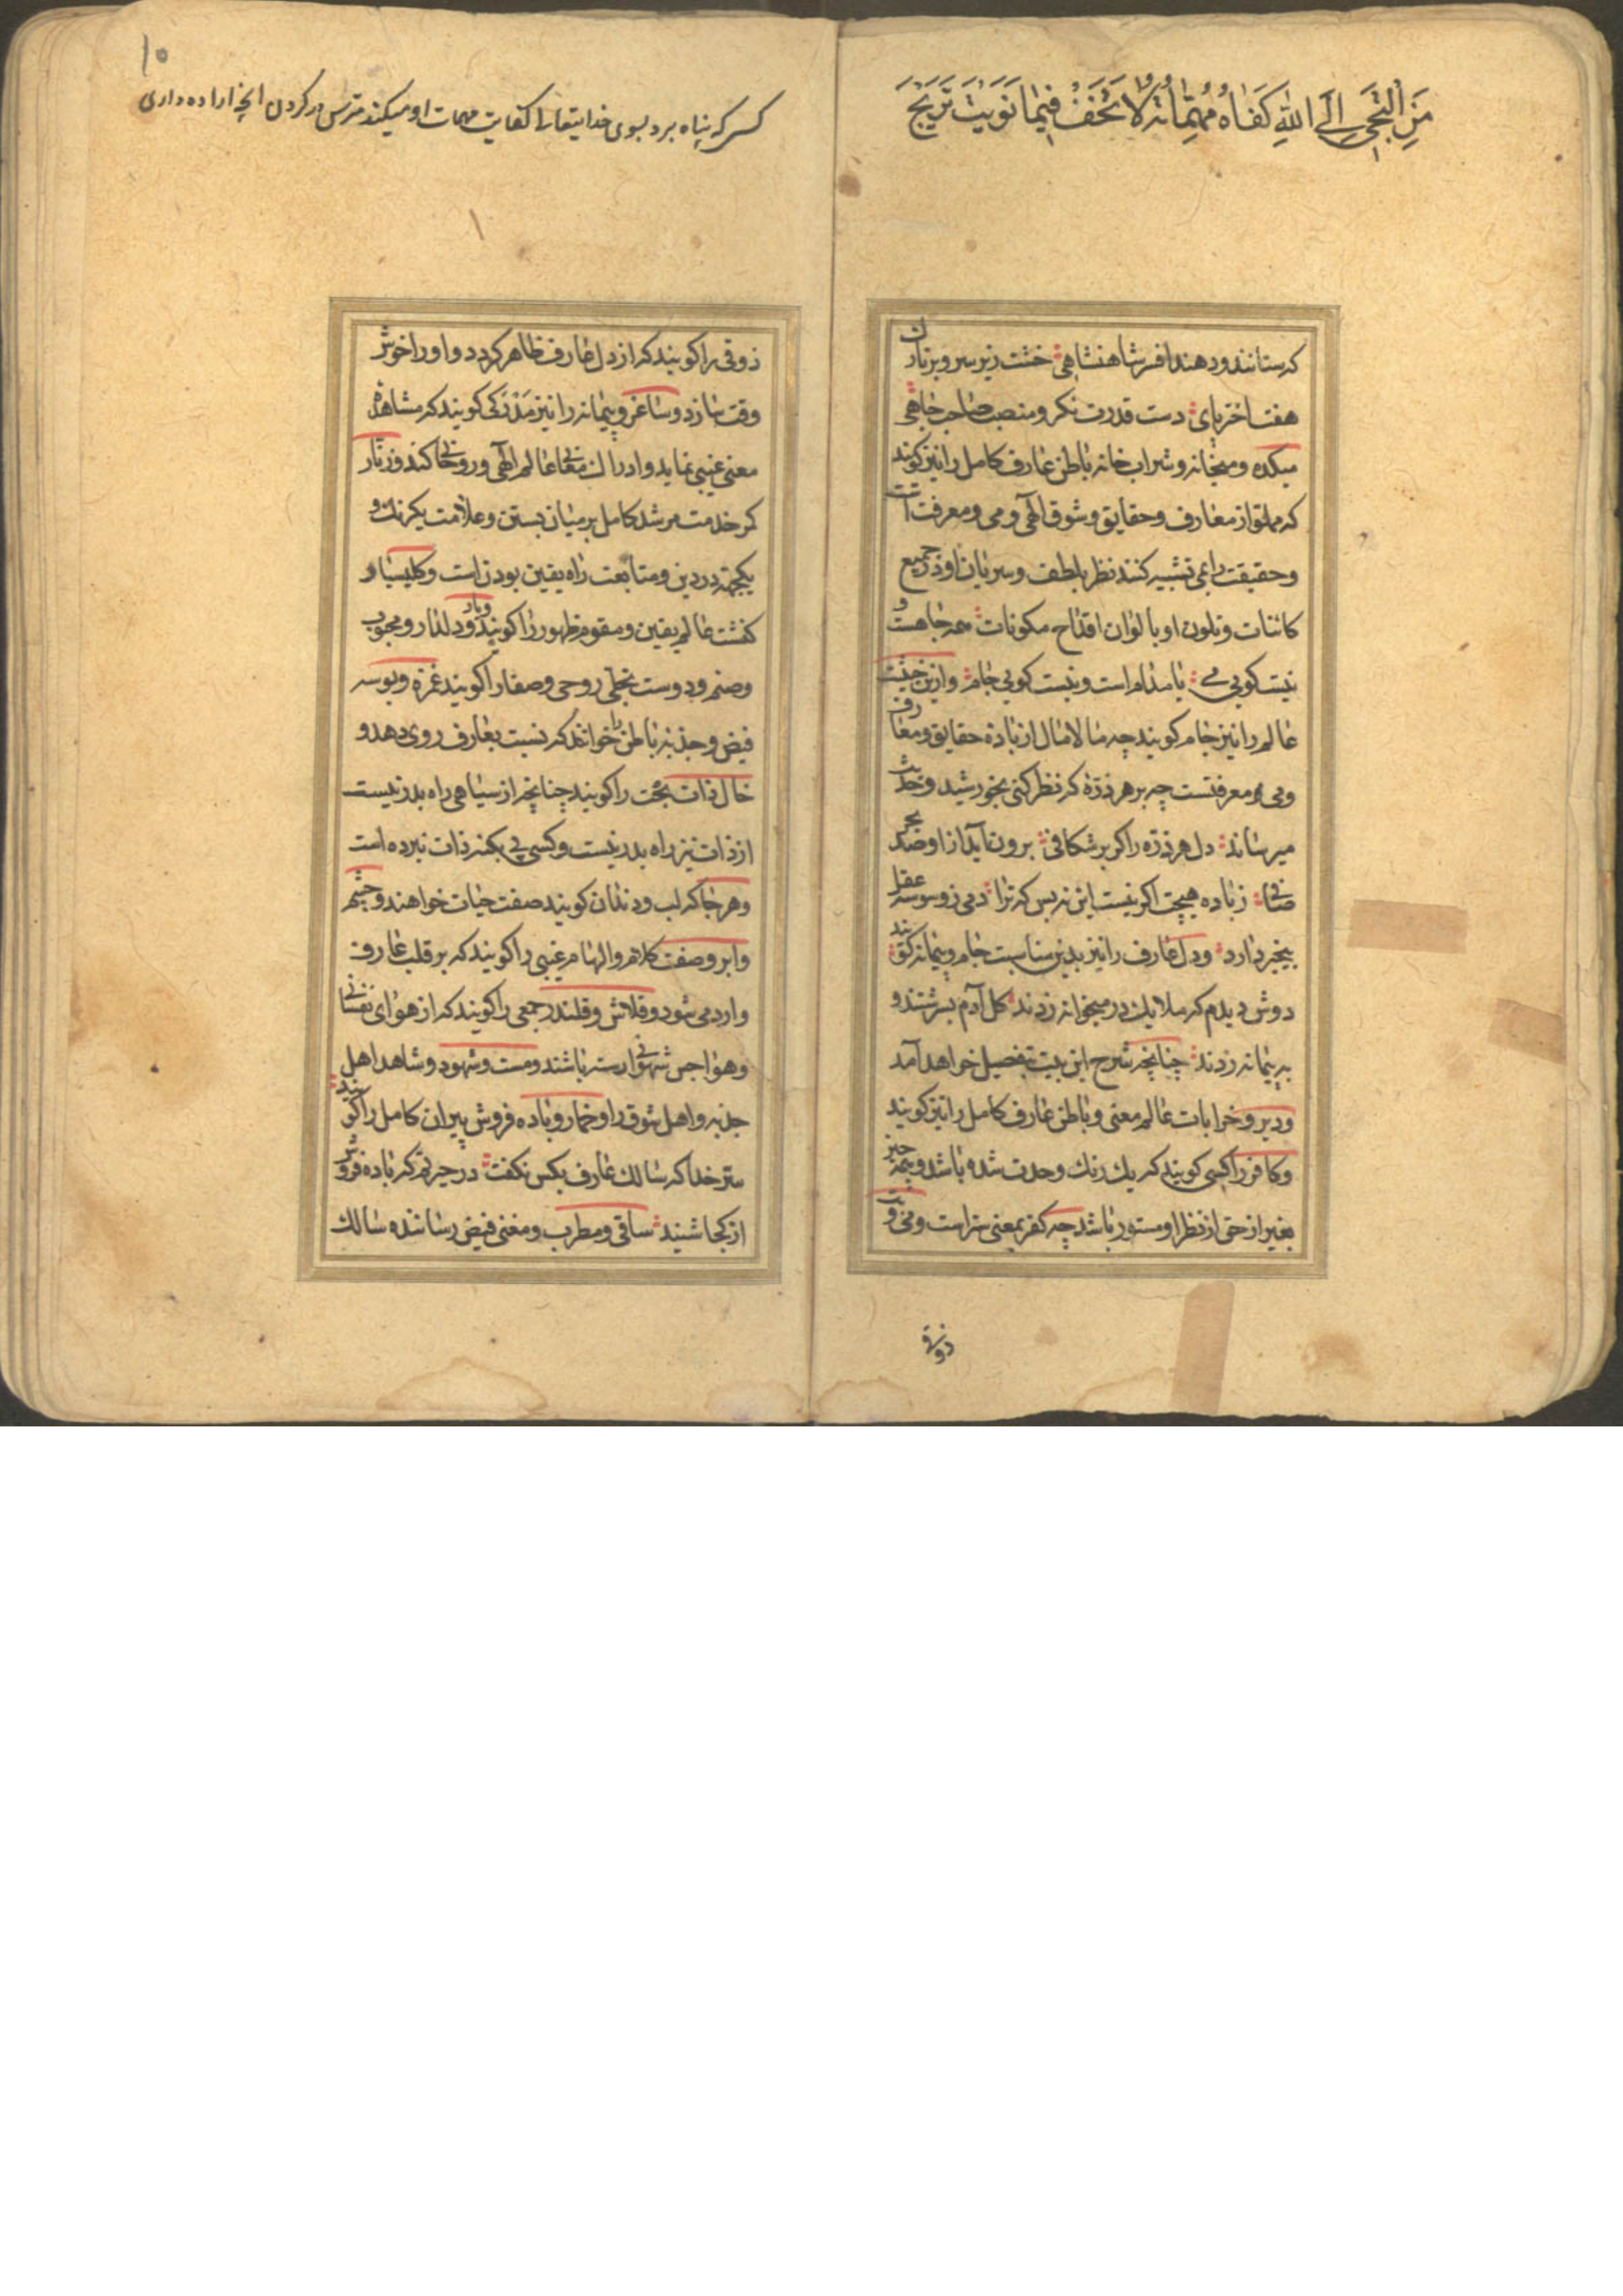 مَنِ الْتَجَیٰ اِلَی اللّٰهِ کَفَاهُ مُهِمَّاتَهُ لَا تَخَفْ فِیْمَا نَوَیْتَ تَرْبَحْ
که ستانند و دهند افسر شاهنشاهی خشت زیر سر و بر تارك
هفت اختر پای دست قدرت نکر و منصب صاحب جاهی
میکده و میخانه و شراب خانه باطن عارف کامل را نیز کویند
که مملو از معارف و حقایق و شوق الهی و می و معرفت است
و حقیقت را بمی تشبیه کنند نظر بلطف و سریان او در جمیع
کاینات و تلون او بالوان اقداح مکونات همه جامست و
نیست کویی می یا مدام است و نیست کویی جام و ازین حیثیت
عالم را نیز جام کویند چه مالامال از باده حقایق و معارف
و می معرفتست چه بر هر ذره که نظر کنی بخورشید وحدت
میرساند دل هر ذره را که برشکافی برون آید ازو صد بحر
صافی ز باده هیچت اکر نیست این نه بس که ترا دمی ز وسوسه عقل
بیخبر دارد و دل عارف را نیز بدین مناسبت جام و پیمانه کویند
دوش دیدم که ملایك در میخانه زدند کل آدم بسرشتند و
به پیمانه زدند چنانچه شرح این بیت بتفصیل خواهد آمد
و دیر و خرابات عالم معنی و باطن عارف کامل را نیز کویند
و کافر کسی را کویند که یك رنك وحدت شده باشد و همه چیز
بغیر از حق از نظر او مستور باشد چه کفر بمعنی ستر است و
ذوقی
۱۰
کسی که پناه برد بسوی خدایتعالی کفایت مهمات او میکند مترس در کردن آنچه اراده داری
ذوقی را کویند که از دل عارف ظاهر کردد و او را خوش
وقت سازد و ساغر و پیمانه را نیز مدرکی کویند که مشاهده
معنی غیبی نماید و ادراك معانی عالم الهی و روحانی کند و زنار
کمر خدمت مرشد کامل بر میان بستن و علامت یکرنك و
یکجهة در دین و متابعت راه یقین بودن است و کلیسیا و
کنشت عالم یقین و مقوم ظهور را کویند و یار و دلدار و محبوب
و صنم و دوست تجلی روحی و صفا را کویند غمزه و بوسه
فیض و جذبه باطن را خوانند که نسبت بعارف روی دهد و
خال ذات بحت را کویند چنانچه از سیاهی راه بدر نیست
از ذات نیز راه بدر نیست و کسی پی بکنه ذات نبرده است
و هر جا که لب و دندان کویند صفت حیات خواهند و چشم
و ابرو صفت کلام و الهام غیبی را کویند که بر قلب عارف
وارد می شود و قلاش و قلندر جمعی را کویند که از هوای نفسانی
و هواجس شهوانی رسته باشند و مست و شهود و شاهد اهل
جذبه و اهل شوق را و خمار و باده فروش پیران کامل را کویند
سر خدا که سالك عارف بکس نکفت در حیرتم که باده فروش
از کجا شنید ساقی و مطرب و مغنی فیض رساننده سالك